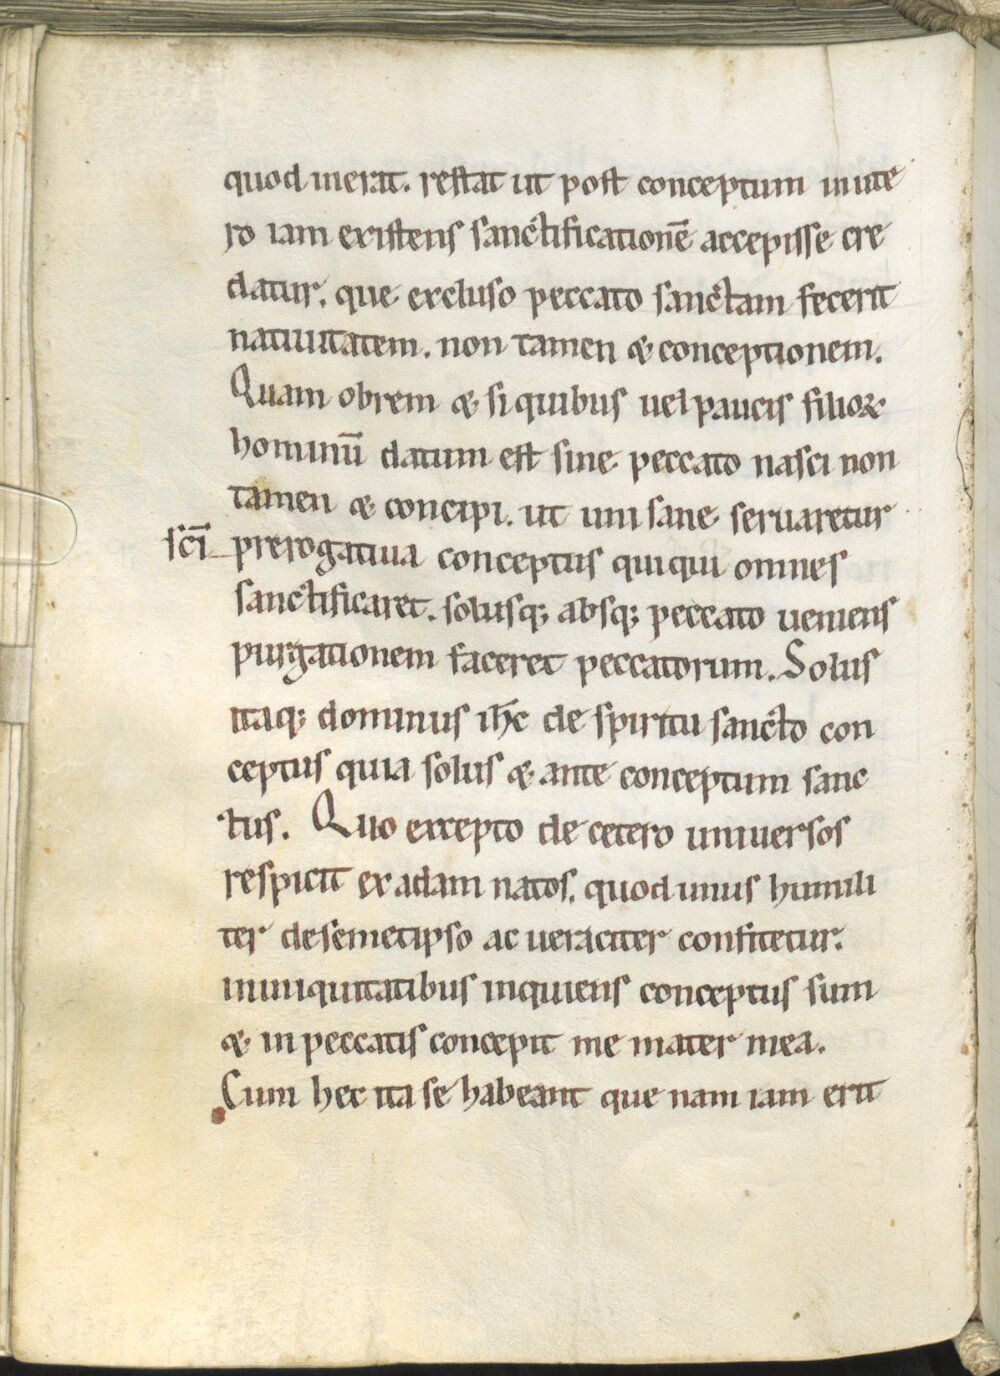 quod inerat. restat ut post conceptum in ute
ro iam existens sanctificationē accepisse cre
datur. que excluso peccato sanctam fecerit
natiuitatem. non tamen & conceptionem.
Quam obrem & si quibus uel paucis filioꝝ
hominū datum est sine peccato nasci non
tamen & concipi. ut uni sane seruaretur
scī prerogatiua conceptus qui qui omnes
sanctificaret. solusq; absq; peccato ueniens
purgationem faceret peccatorum. Solus
itaq; dominus ihc̄ de spiritu sancto con
ceptus quia solus & ante conceptum sanc
tus. Quo excepto de cetero uniuersos
respicit ex adam natos. quod unus humili
ter de semetipso ac ueraciter confitetur.
in iniquitatibus inquiens conceptus sum
& in peccatis concepit me mater mea.
Cum hec ita se habeant que nam iam erit